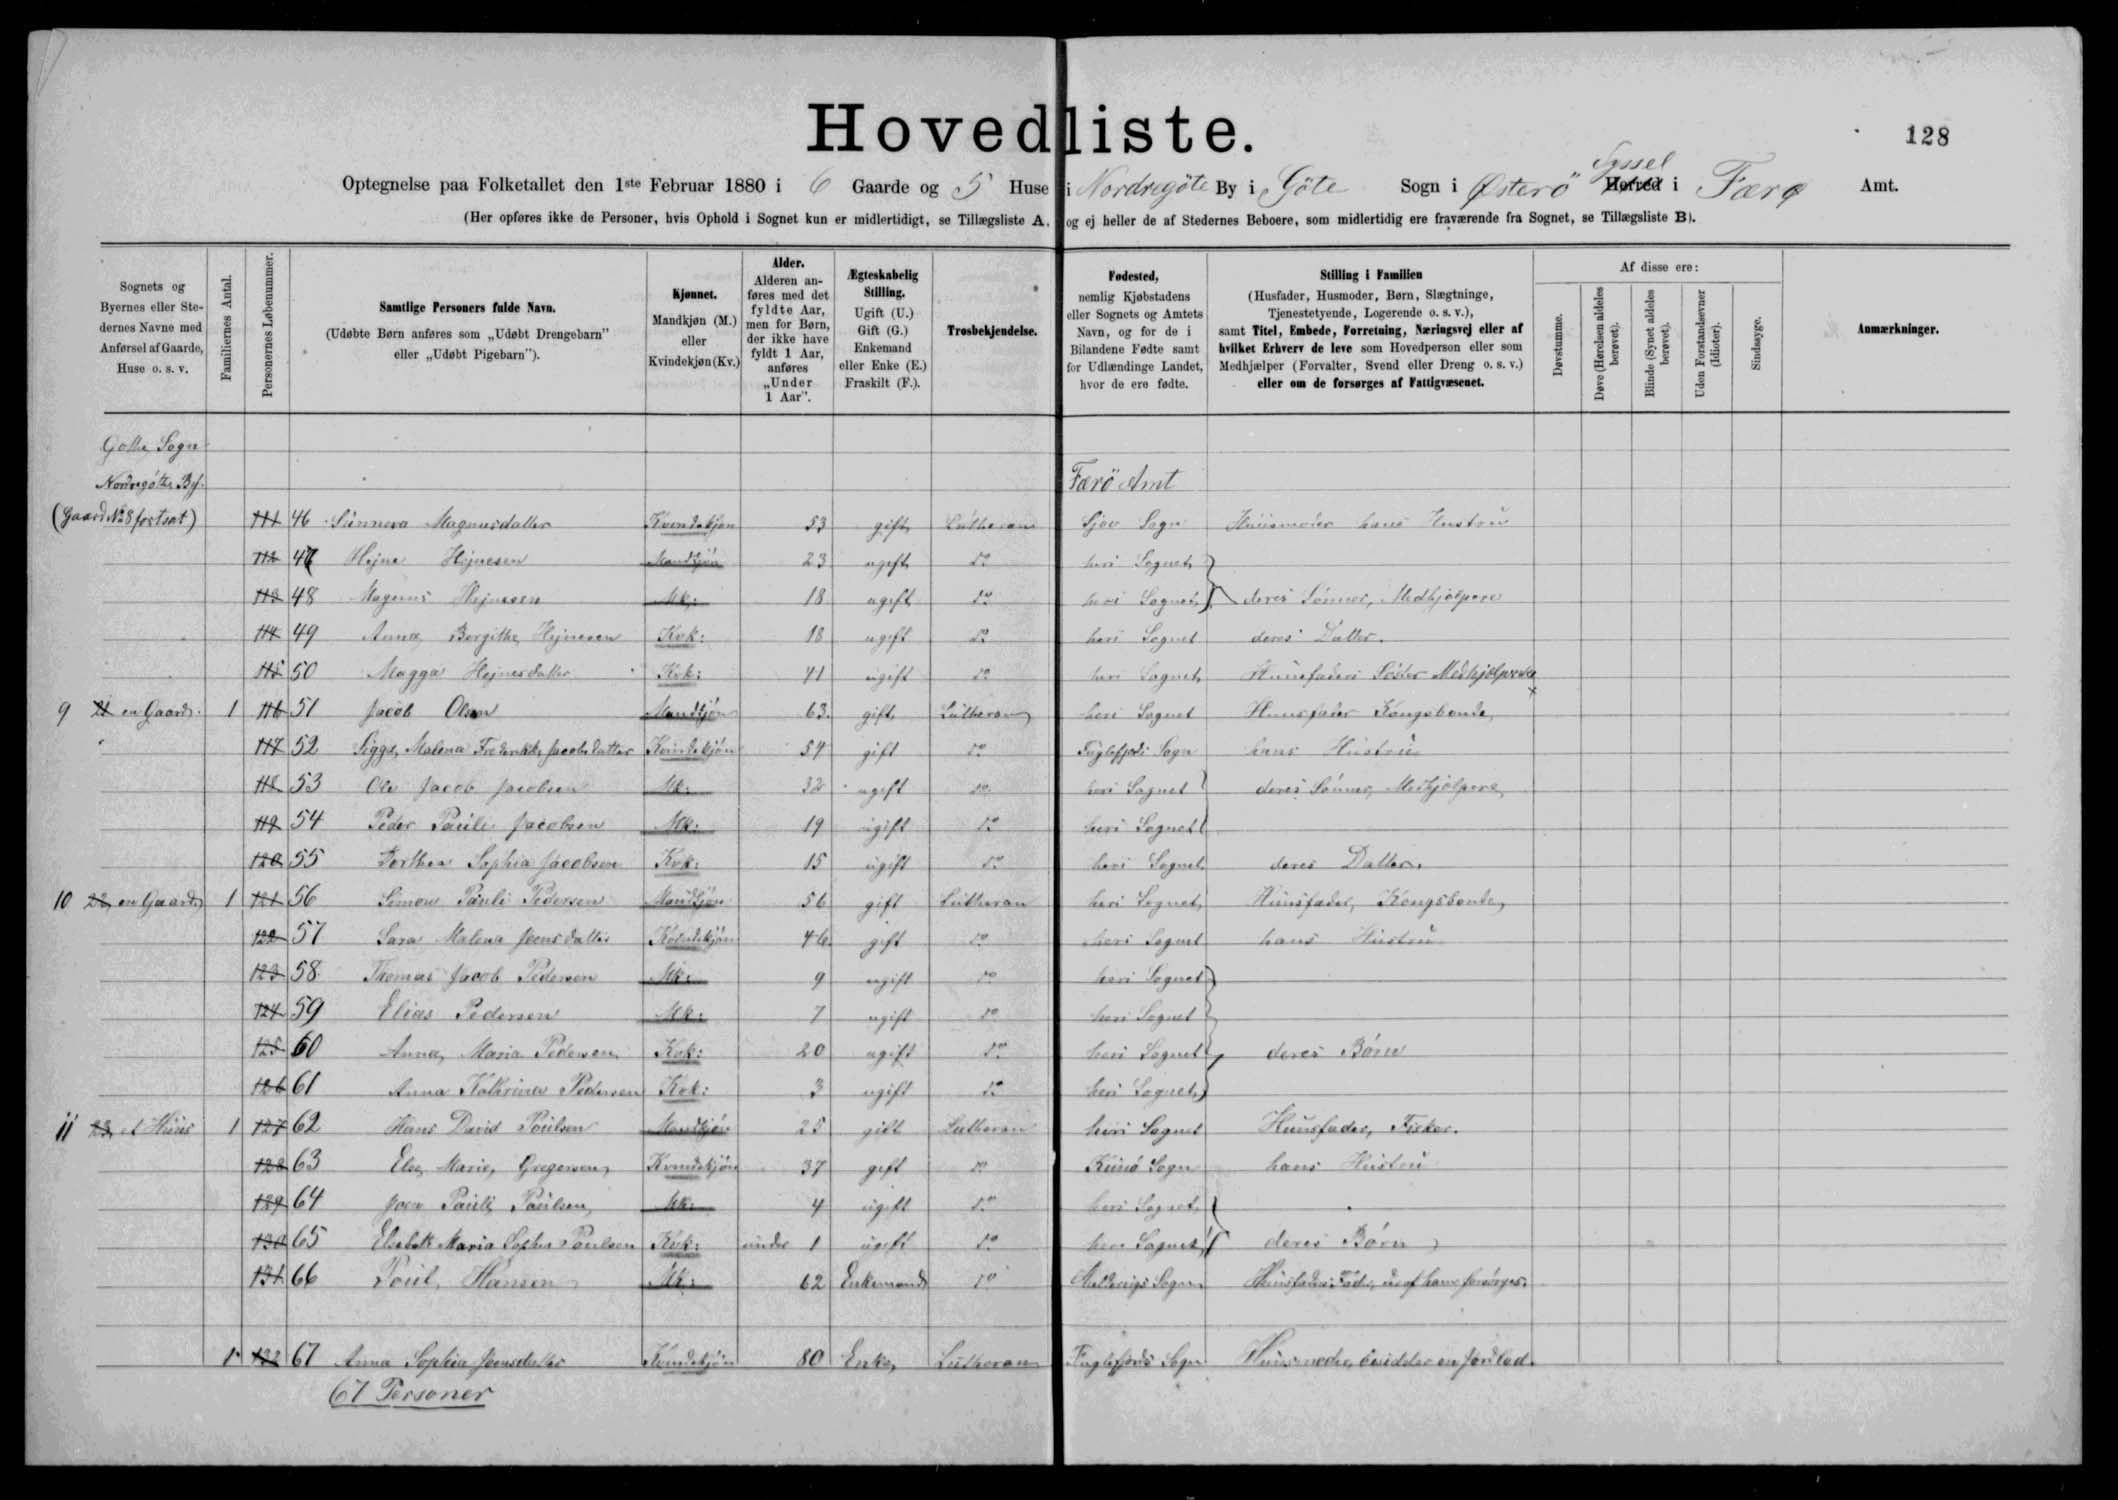 Hovedliste.
128
Optegnelse paa Folketallet den 1ste Februar 1880 i 6 Gaarde og 5 Huse i Nordregöte By i Göte Sogn i Østerö Syssel Herred i Færø Amt.
(Her opføres ikke de Personer, hvis Ophold i Sognet kun er midlertidigt, se Tillægsliste A. og ej heller de af Stedernes Beboere, som midlertidig ere fraværende fra Sognet, se Tillægsliste B).
Sognets og Byernes eller Stedernes Navne med Anførsel af Gaarde, Huse o. s. v.
Familiernes Antal.
Personernes Løbenummer.
Samtlige Personers fulde Navn.
(Udøbte Børn anføres som „Udøbt Drengebarn" eller „Udøbt Pigebarn").
Kjønnet.
Mandkjøn (M.) eller Kvindekjøn (Kv.)
Alder.
Alderen anføres med det fyldte Aar, men for Børn, der ikke have fyldt 1 Aar, anføres „Under 1 Aar".
Ægteskabelig Stilling.
Ugift (U.) Gift (G.) Enkemand eller Enke (E.) Fraskilt (F.).
Trosbekjendelse.
Fødested,
nemlig Kjøbstadens eller Sognets og Amtets Navn, og for de i Bilandene Fødte samt for Udlændinge Landet, hvor de ere fødte.
Stilling i Familien
(Husfader, Husmoder, Børn, Slægtninge, Tjenestetyende, Logerende o. s. v.),
samt Titel, Embede, Forretning, Næringsvej eller af hvilket Erhverv de leve som Hovedperson eller som Medhjælper (Forvalter, Svend eller Dreng o. s. v.) eller om de forsørges af Fattigvæsenet.
Af disse ere:
Døvstumme.
Døve (Hørelsen aldeles berøvet).
Blinde (Synet aldeles berøvet).
Uden Forstandsevner (Idioter).
Sindssyge.
Anmærkninger.
Gøthe Sogn
Nordregöthe By. Færö Amt
(Gaard No 8 fortsat) 111 46 Sunneva Magnusdatter Kvindekjön 53 gift Lutheran Sjov Sogn Huusmoder hans Hustru
112 47 Hejne Hejnesen Mandkjön 23 ugift do heri Sognet
113 48 Magnus Hejnesen Mk: 18 ugift do heri Sognet deres Sönner, Medhjælpere
114 49 Anna Birgithe Hejnesen Kvk: 18 ugift do heri Sognet deres Datter.
115 50 Magga Hejnesdatter Kvk: 41 ugift do heri Sognet Huusfaders Söster Medhjælperske
9 21 en Gaard. 1 116 51 Jacob Olsen Mandkjön 63 gift Lutheran heri Sognet Huusfader Kongsbonde
117 52 Sigga Malena Frederikke Jacobsdatter Kvindekjön 54 gift do Fuglefjords Sogn hans Hustru
118 53 Ole Jacob Jacobsen Mk: 32 ugift do heri Sognet deres Sönner, Medhjælpere
119 54 Peder Pauli Jacobsen Mk: 19 ugift do heri Sognet
120 55 Dorthea Sophia Jacobsen Kvk: 15 ugift do heri Sognet deres Datter.
10 22 en Gaard 1 121 56 Simon Pauli Pedersen Mandkjön 56 gift Lutheran heri Sognet Huusfader, Kongsbonde,
122 57 Sara Malena Joensdatter Kvindekjön 46 gift do heri Sognet hans Hustru
123 58 Thomas Jacob Pedersen Mk: 9 ugift do heri Sognet
124 59 Elias Pedersen Mk: 7 ugift do heri Sognet
125 60 Anna Maria Pedersen Kvk: 20 ugift do heri Sognet deres Börn
126 61 Anna Kathrina Pedersen Kvk: 3 ugift do heri Sognet
11 23 et Huus 1 127 62 Hans David Poulsen Mandkjön 25 gift Lutheran heri Sognet Huusfader, Fisker.
128 63 Else Marie Gregersen Kvindekjön 37 gift do Kunö Sogn hans Hustru
129 64 Joen Pauli Poulsen Mk: 4 ugift do heri Sognet
130 65 Elsebeth Maria Sophia Poulsen Kvk: under 1 ugift do heri Sognet deres Börn
131 66 Poul Hansen Mk: 62 Enkemand do Sogn Huusfaders Fader, af ham forsörges.
1 132 67 Anna Sophia Joensdatter Kvindekjön 80 Enke, Lutheran Fuglefjords Sogn Huusmoder, besidder en Jordlod.
67 Personer